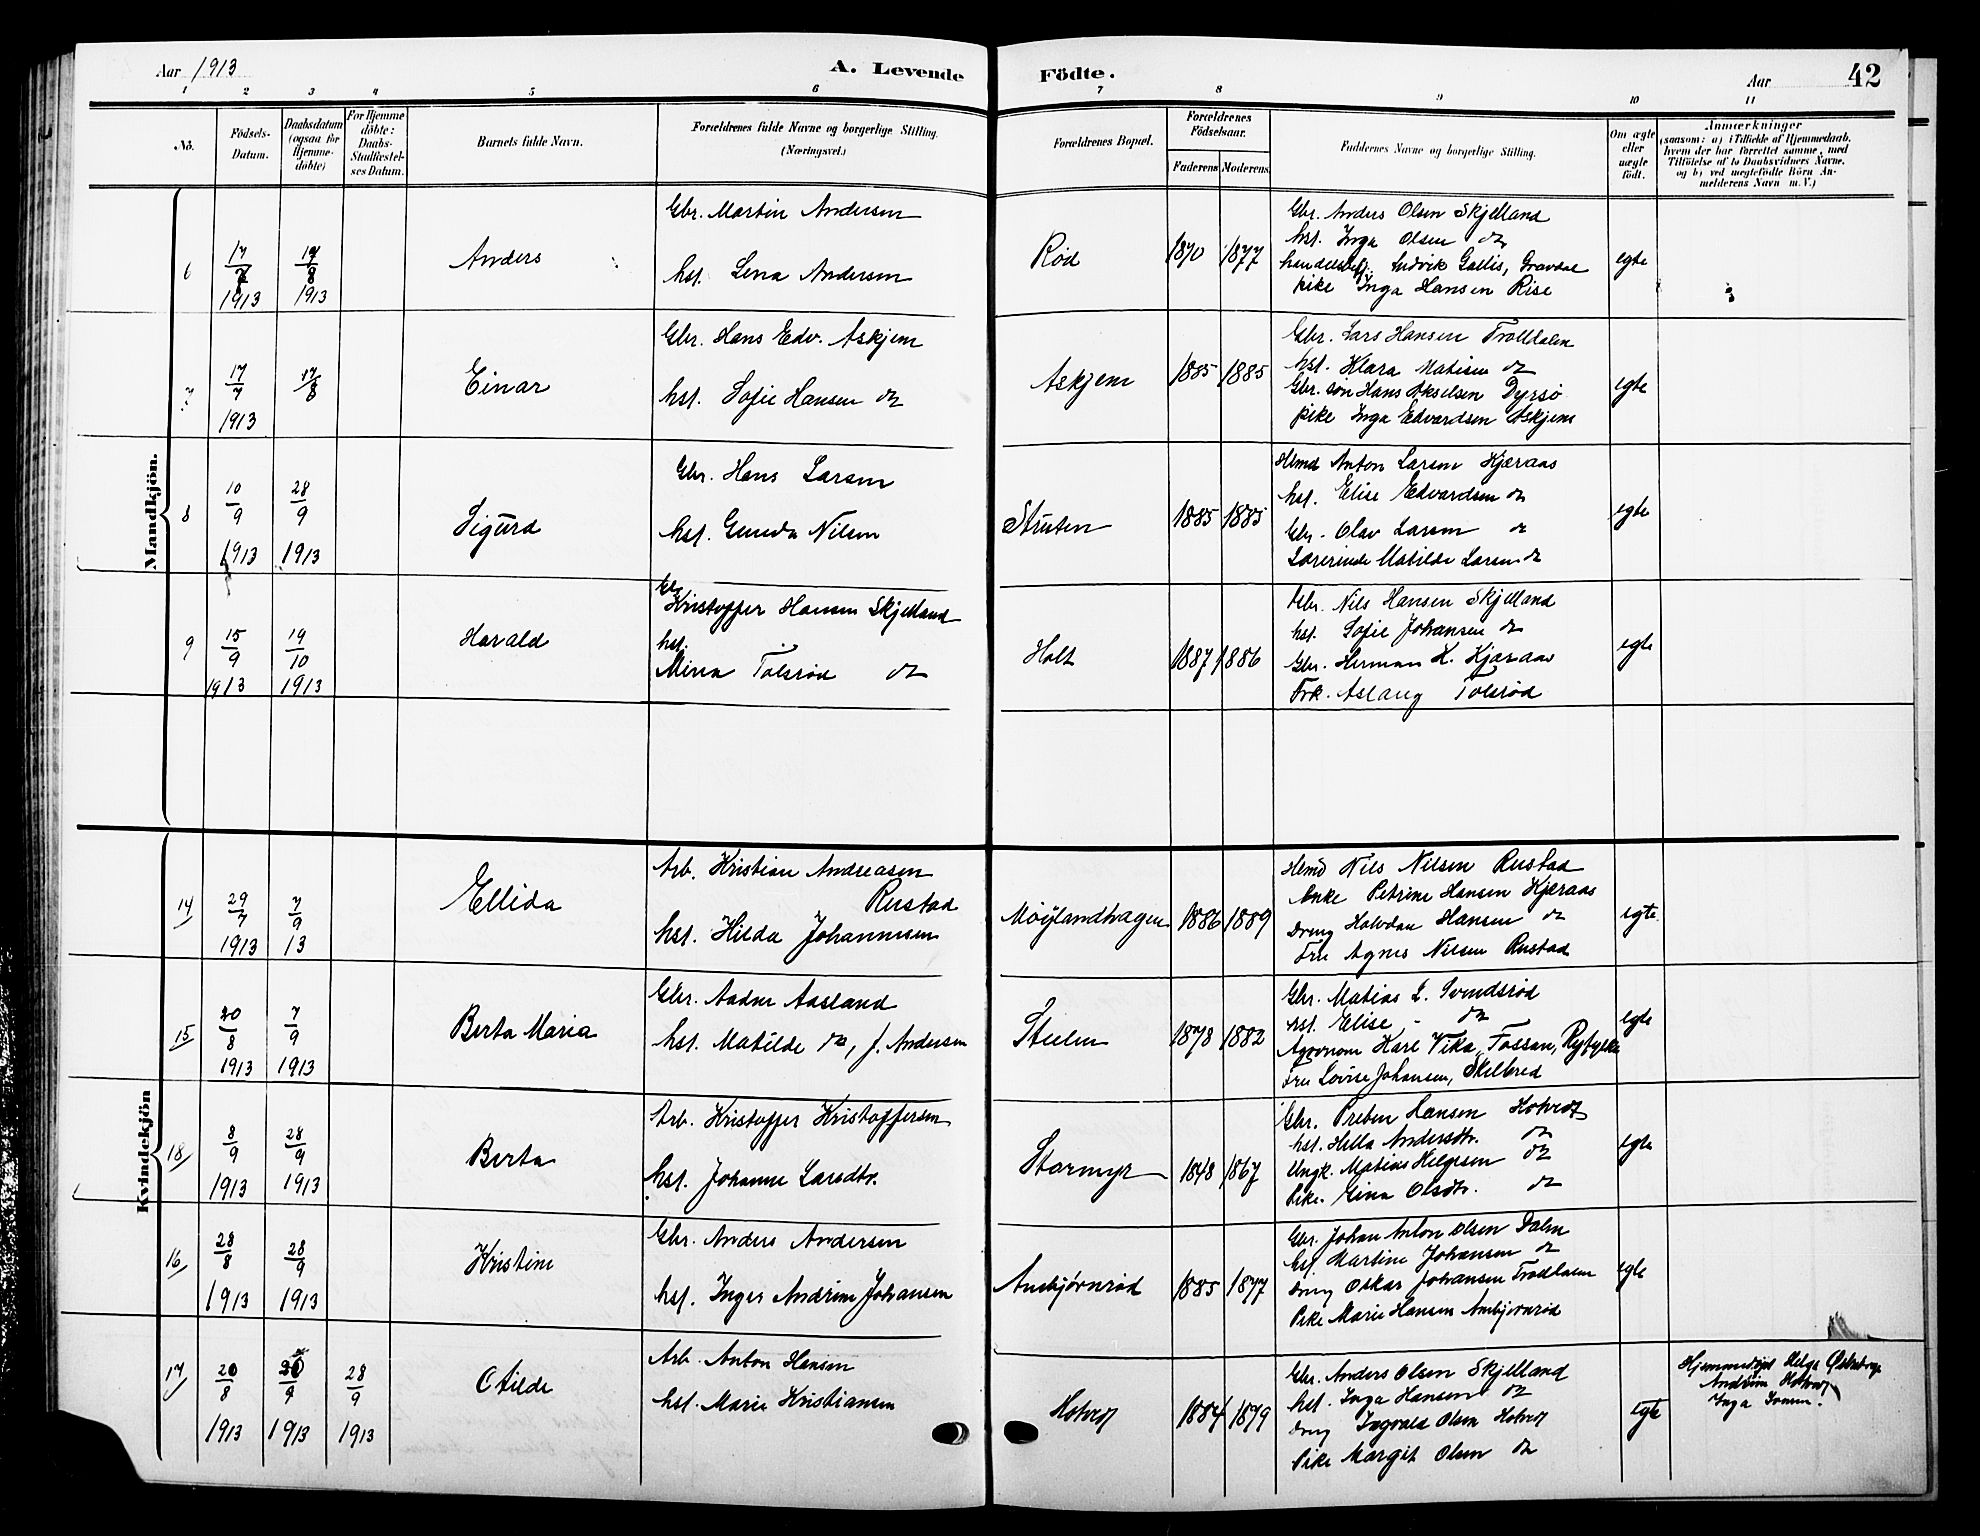 Aar 1913
A. Levende Födte.
Aar
42
1 2 3 4 5 6 7 8 9 10 11
No.
Födsels-
Datum.
Daabsdatum
(ogsaa for
Hjemme-
döbte)
For Hjemme
döbte:
Daabs-
Stadfæstel-
ses Datum.
Barnets fulde Navn.
Forældrenes fulde Navne og borgerlige Stilling.
(Næringsvei.)
Forældrenes Bopæl.
Forældrenes
Födselsaar.
Faderens Moderens
Faddernes Navne og borgerlige Stilling.
Om ægte
eller
uægte
födt.
Anmærkninger
(saasom: a) i Tilfælde af Hjemmedaab,
hvem der har forrettet samme, med
Tilföielse af to Daabsvidners Navne,
og b) ved uegtefödte Börn An-
melderens Navn m. V.)
Mandkjön.
6
17/7 1913
17/8 1913
Anders
Gbr. Martin Andersen
hst. Lena Andersen
Rød
1870 1877
Gbr. Anders Olsen Skjelland
hst. Inga Olsen do
Ludvik Gallis, Gravdal
pike Inga Hansen Rise
egte
7
17/7 1913
17/8
Einar
Gbr. Hans Edv. Askjem
hst. Sofie Hansen do
Askjem
1885 1885
Gbr. Lars Hansen Trolldalen
hst. Klara Matisen do
Gbr. søn Hans Akselsen Dyrsø
pike Inga Edvardsen Askjem
egte
8
10/9 1913
28/9 1913
Sigurd
Gbr. Hans Larsen
hst. Gunda Nilsen
Struten
1885 1885
Hmd Anton Larsen Kjæraas
hst. Elise Edvardsen do
Gbr. Olav Larsen do
Lærerinde Matilde Larsen do
egte
9
15/9 1913
19/10 1913
Harald
Gbr
Kristoffer Hansen Skjelland
hst.
Mina Tolsrød do
Holt
1887 1886
Gbr. Nils Hansen Skjelland
hst. Sofie Johansen do
Gbr. Herman H. Kjæraas
Frk. Aslaug Tolsrød
egte
Kvindekjön
14
29/7 1913
7/9 13
Ellida
Arb. Kristian Andreasen
Rustad
hst. Hilda Johannesen
Møylandhagen
1886 1889
Hmd Nils Nilsen Rustad
Enke Petrine Hansen Kjæraas
Dreng Halvdan Hansen do
Fru Agnes Nilsen Rustad
egte.
15
20/8 1913
7/9 1913
Berta Maria
Gbr. Aadne Aasland
hst. Matilde do, f. Andersen
Steelen
1878 1882
Gbr. Matias L. Svendsrød
hst. Elise - do
Agronom Karl Vika, Fossan, Ryfylke
Fru Lovise Johansen, Skelbred
egte
18
8/9 1913
28/9 1913
Berta
Arb. Kristoffer Kristoffersen
hst. Johanne Larsdtr.
Stormyr
1848 1867
Gbr. Preben Hansen Hotvedt
hst. Hella Andersdtr. do
Ungk. Matias Helgesen do
Pike. Gina Olsdtr. do
egte
16
28/8 1913
28/9 1913
Kristine
Gbr. Anders Andersen
hst. Inger Andrine Johansen
Ambjørnrød
1885 1877
Gbr. Johan Anton Olsen Dalen
hst. Martine Johansen do
Dreng Oskar Johansen Trolldalen
Pike Marie Hansen Ambjørnrød
egte
17
20/8 1913
20/9 1913
28/9 1913
Otilde
Arb. Anton Hansen
hst. Marie Kristiansen
Hotvedt
1884 1879
Gbr. Anders Olsen Skjelland
hst. Inga Hansen do
Dreng Ingvald Olsen Hotvedt
Pike Margit Olsen do
egte
Hjemmedøpt Helga
Andrine Hotvedt
Inga